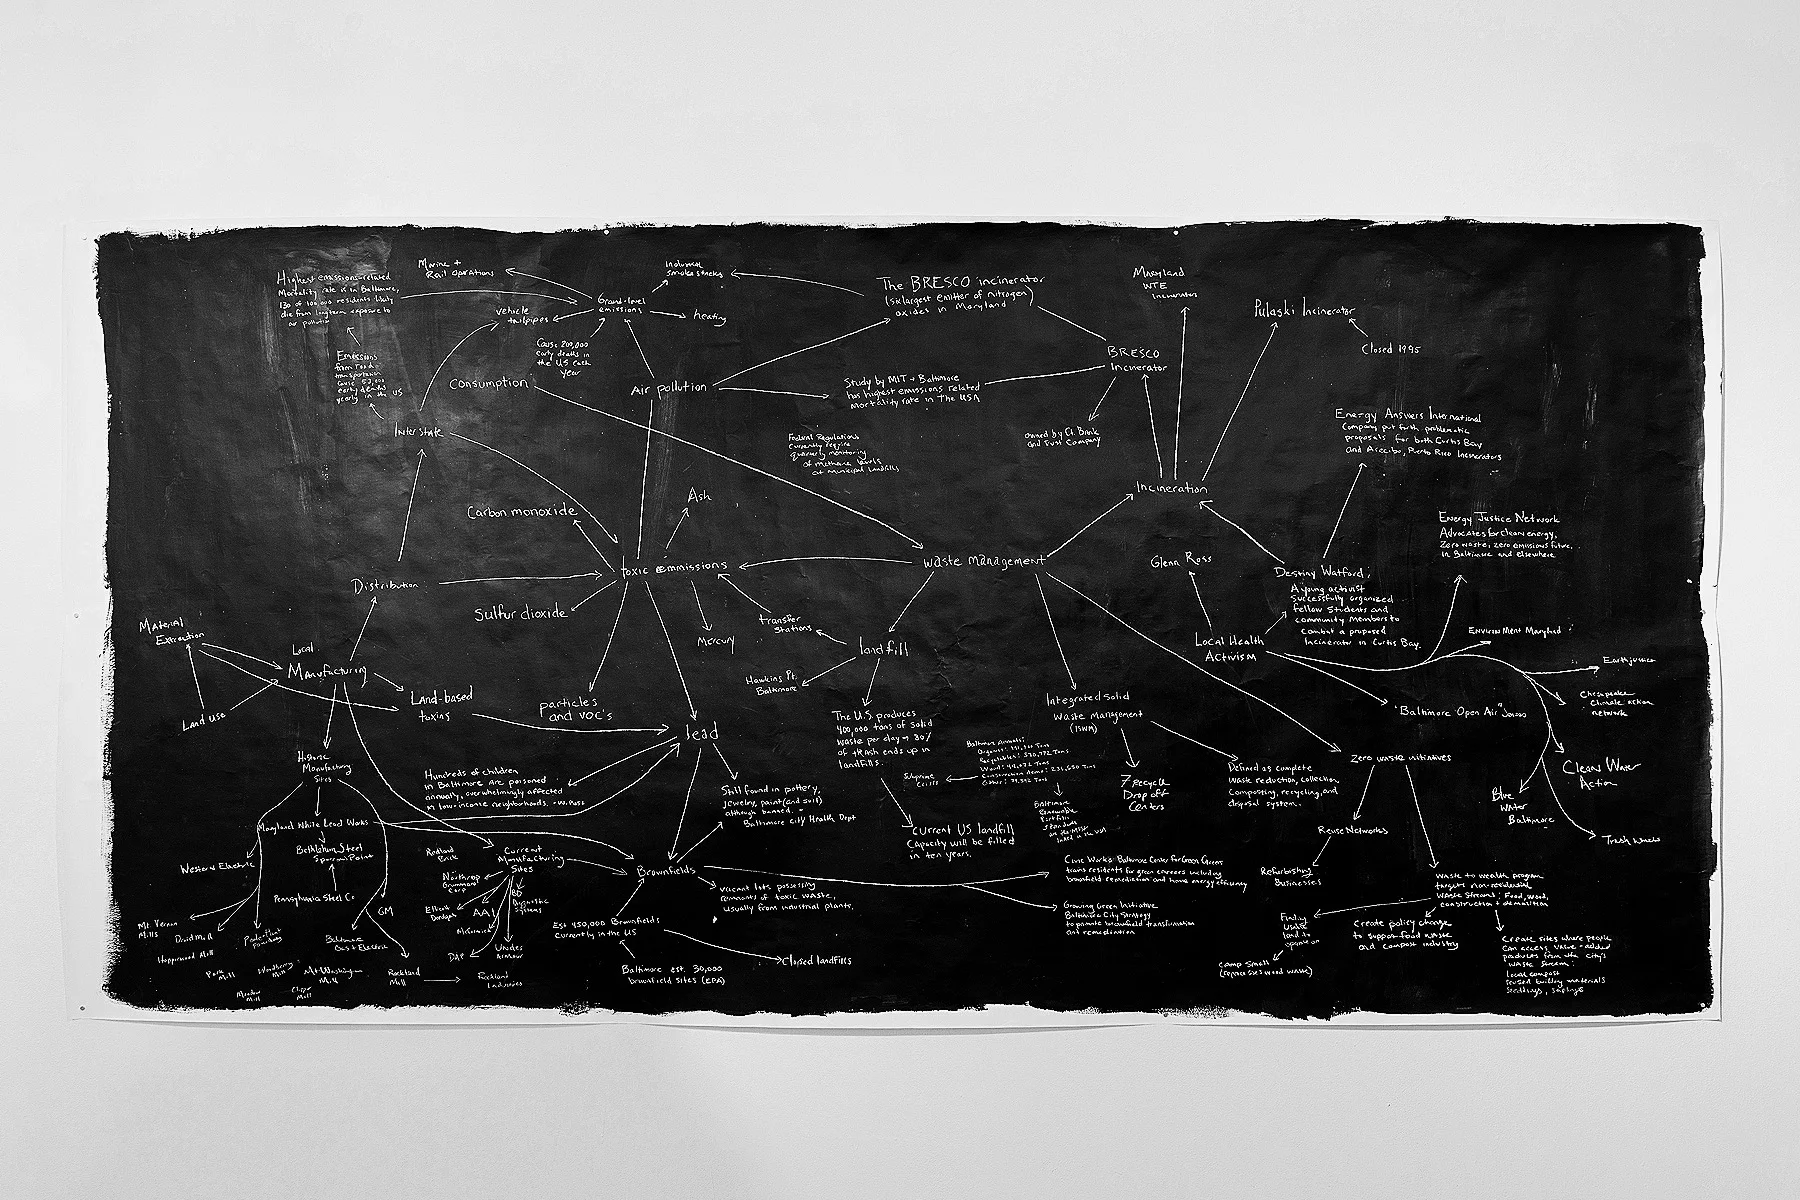 Highest emissions-related
Mortality rate is in Baltimore,
130 of 100,000 residents likely
die from longterm exposure to
air pollution
Marine +
Rail Operations
Industrial
smoke stacks
Ground-level
emissions
vehicle
tailpipes
heating
Cause 200,000
early deaths in
the US each
year
Emissions
from road
transportation
cause 53,000
early deaths
yearly in the US
Consumption
Air pollution
Interstate
The BRESCO incinerator
(six largest emitter of nitrogen)
oxides in Maryland
Study by MIT + Baltimore
has highest emissions related
mortality rate in the USA
Federal Regulations
currently require
quarterly monitoring
of methane levels
at municipal landfills
Maryland
WTE
Incinerators
Pulaski Incinerator
Closed 1995
BRESCO
Incinerator
owned by Ct. Bank
and Trust Company
Energy Answers International
Company put forth problematic
proposals for both Curtis Bay
and Arecibo, Puerto Rico Incinerators
Incineration
Energy Justice Network
Advocates for clean energy,
Zero waste, zero emissions future,
in Baltimore and elsewhere
Ash
Carbon monoxide
toxic emmissions
Waste management
Glenn Ross
Destiny Watford:
A young activist
successfully organized
fellow students and
community members to
combat a proposed
Incinerator in Curtis Bay.
Distribution
Sulfur dioxide
Mercury
Transfer
Stations
landfill
Hawkins Pt.
Baltimore
Local Health
Activism
Environment Maryland
Earthjustice
Chesapeake
Climate action
network
"Baltimore Open Air"
Material
Extraction
Local
Manufacturing
Land use
Land-based
toxins
particles
and VOC's
lead
The U.S. produces
400,000 tons of solid
waste per day → 30%
of trash ends up in
landfills.
Integrated Solid
Waste Management
(ISWM)
Zero waste initiatives
Clean Water
Action
Blue
Water
Baltimore
Trash Wheels
Historic
Manufacturing
Sites
Hundreds of children
in Baltimore are poisoned
annually, overwhelmingly affected
in low-income neighborhoods. -W. Post
Still found in pottery,
jewelry, paint (and soil)
although banned. -
Baltimore City Health Dept
Current US landfill
Capacity will be filled
in ten years.
Baltimore Annual:
7 recycle
Drop off
Centers
Baltimore
Renewable
Portfolio
Standards
Defined as complete
waste reduction, collection,
composting, recycling, and
disposal system.
Reuse Networks
Refurbishing
Businesses
Waste to wealth program
targets non-residential
waste streams; food, wood,
construction + demolition
Maryland White Lead Works
Bethlehem Steel
Sparrows Point
Western Electric
Pennsylvania Steel Co
GM
Current
Manufacturing
Sites
Northrop
Grumman
Corp
AAI
McCormick
BD
Diagnostic
Systems
Under
Armour
Brownfields
Vacant lots possessing
remnants of toxic waste,
usually from industrial plants.
Est 450,000 Brownfields
Currently in the US
Baltimore est. 30,000
brownfield sites (EPA)
Closed landfills
Civic Works: Baltimore Center for Green Careers
trains residents for green careers including
brownfield remediation and home energy efficiency
Growing Green Initiative
Baltimore City Strategy
to promote brownfield transformation
and remediation
Camp Small
(repurposes wood waste)
Create policy change
to support food waste
and compost industry
Create sites where people
can access value-added
products from the city's
waste stream:
local compost
reused building materials
Seedlings, saplings
Mt Vernon
Mills
Druid Mill
Hopperwood Mill
Baltimore
Gas + Electric
Park
Mill
Woodberry
Mill
Mt Washington
Mill
Meadow
Mill
Clipper
Mill
Rockland
Mill
Rockland
Industries